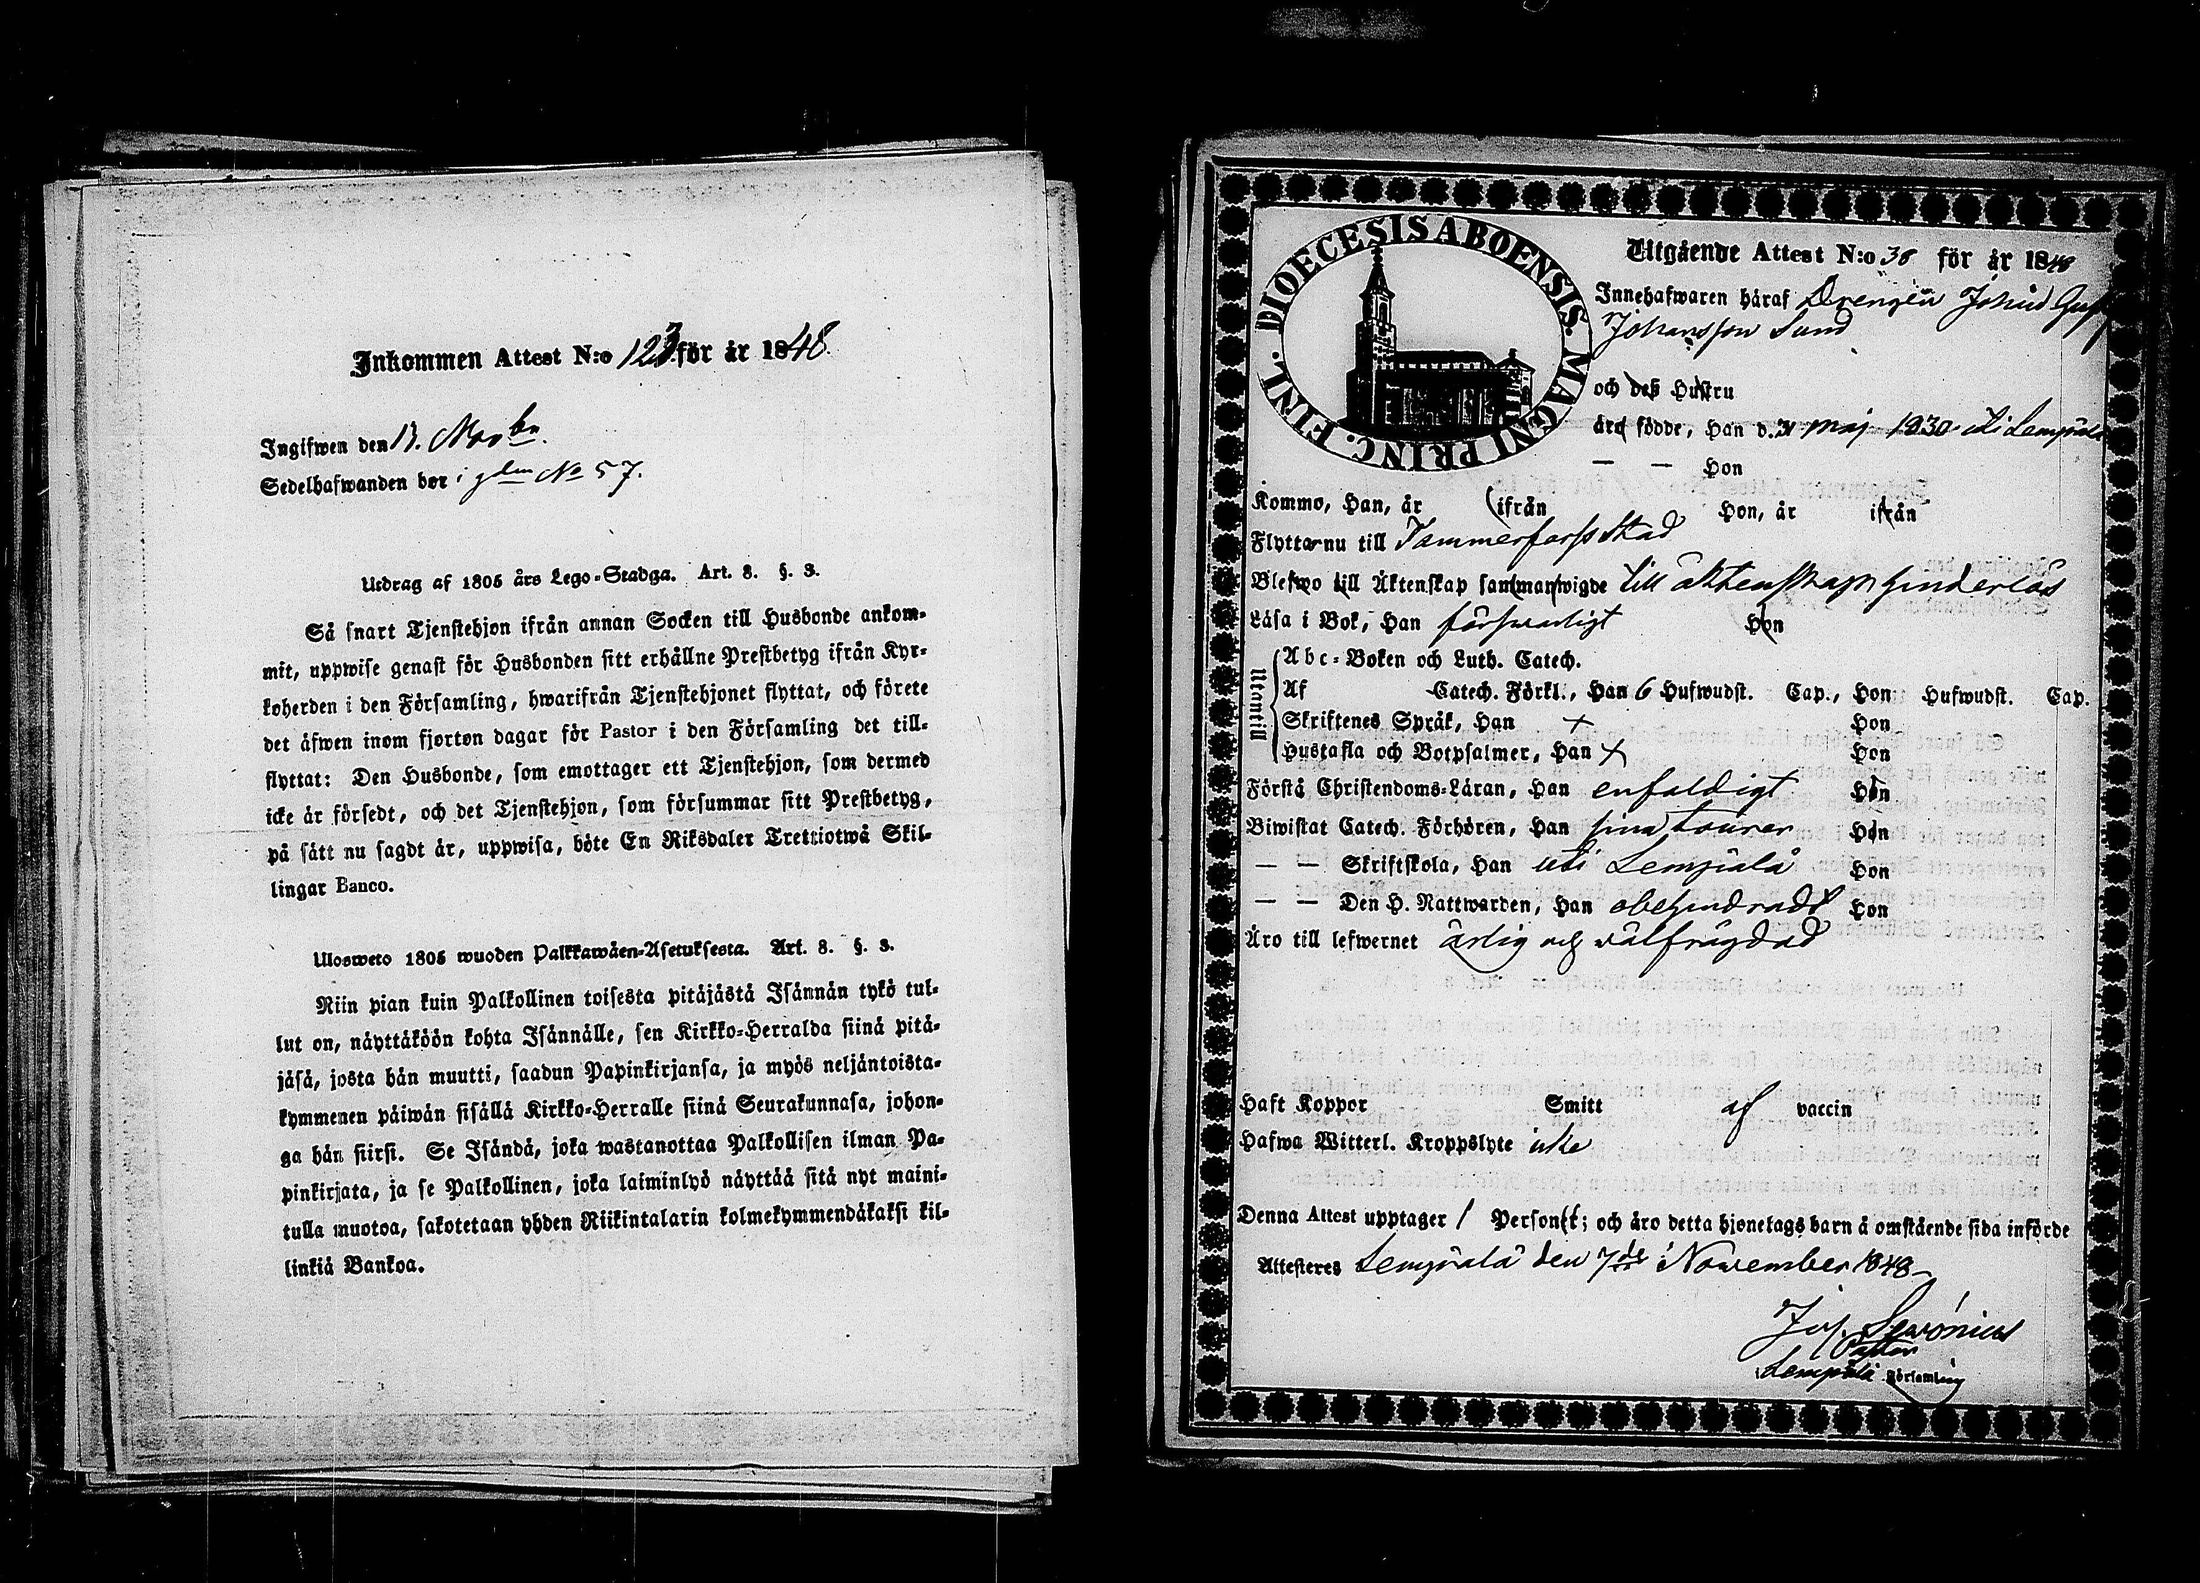 Inkommen Attest N:o 123 för år 1848.
Ingifwen den 13. Novbr.
Sedelhafwanden bor i gln No 57.
Utdrag af 1805 års Lego-Stadga. Art. 8. §. 3.
Så snart Tjenstehjon ifrån annan Socken till Husbonde ankom-
mit, uppwise genast för Husbonden sitt erhållne Prestbetyg ifrån Kyr-
koherden i den Församling, hwarifrån Tjenstehjonet flyttat, och förete
det äfwen inom fjorton dagar för Pastor i den Församling det till-
flyttat: Den Husbonde, som emottager ett Tjenstehjon, som dermed
icke är försedt, och det Tjenstehjon, som försummar sitt Prestbetyg,
på sätt nu sagdt är, uppwisa, böte En Riksdaler Trettiotwå Skil-
lingar Banco.
Ulosweto 1805 wuoden Palkkawäen-Asetuksesta. Art. 8. §. 3.
Niin pian kuin Palkollinen toisesta pitäjästä Isännän tykö tul-
lut on, näyttäköön kohta Isännälle, sen Kirkko-Herralda siinä pitä-
jäsä, josta hän muutti, saadun Papinkirjansa, ja myös neljäntoista-
kymmenen päiwän sisällä Kirkko-Herralle siinä Seurakunnasa, johon-
ga hän siirsi. Se Isändä, joka wastanottaa Palkollisen ilman Pa-
pinkirjata, ja se Palkollinen, joka laiminlyö näyttää sitä nyt maini-
tulla muotoa, sakotetaan yhden Riikintalarin kolmekymmendäkaksi kil-
linkiä Bankoa.
DIOECESIS ABOENSIS. MAGNI PRINC. FINL.
Utgående Attest N:o 38 för år 1848
Innehafwaren häraf Drengen Johan Gust
Johansson Sund
och deß Hustru
äro födde, Han d. 31 maj 1830 uti Lempäälä
— — Hon
Kommo, Han, år ifrån Hon, år ifrån
Flytta nu till Tammerforss Stad
Blefwo till Äktenskap sammanwigde till äktenskap hinderlös
Läsa i Bok, Han försvarligt Hon
Utantill
Abc-Boken och Luth. Catech.
Af Catech. Förkl., Han 6 Hufwudst. Cap., Hon Hufwudst. Cap.
Skriftenes Språk, Han + Hon
Hustafla och Botpsalmer, Han + Hon
Förstå Christendoms-Läran, Han enfaldigt Hon
Biwistat Catech. Förhören, Han sina tourer Hon
— — Skriftskola, Han uti Lempäälä Hon
— — Den H. Nattwarden, Han obehindradt Hon
Äro till lefwernet ärlig och välfrägdad
Haft Koppor Smitt af vaccin
Hafwa Witterl. Kroppslyte icke
Denna Attest upptager 1 Person; och äro detta hjonelags barn å omstående sida införde
Attesteres Lempäälä den 7de November 1848
Jos. Servónius
Pastor
Lempäälä Församling